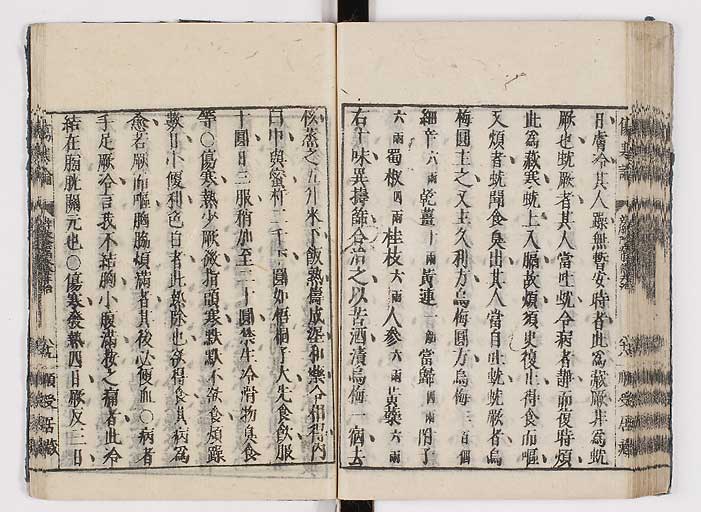 日膚冷其人躁無暫安時者此為藏厥非為蚘
厥也蚘厥者其人當吐蚘令病者靜而復時煩
此為藏寒蚘上入膈故煩須臾復止得食而嘔
又煩者蚘聞食臭出其人當自吐蚘蚘厥者烏
梅圓主之又主久利方烏梅圓方烏梅三百個
細辛六兩乾薑十兩黃連一觔當歸四兩附子
六兩蜀椒四兩桂枝六兩人參六兩黃蘗六兩
右十味異擣篩合治之以苦酒漬烏梅一宿去
核蒸之五升米下飯熟擣成泥和藥令相得內
臼中與蜜杵二千下圓如梧桐子大先食飲服
十圓日三服稍加至二十圓禁生冷滑物臭食
等○傷寒熱少厥微指頭寒默默不欲食煩躁
數日小便利色白者此熱除也欲得食其病為
愈若厥而嘔胸脇煩滿者其後必便血○病者
手足厥冷言我不結胸小腹滿按之痛者此冷
結在膀胱關元也○傷寒發熱四日厥反三日